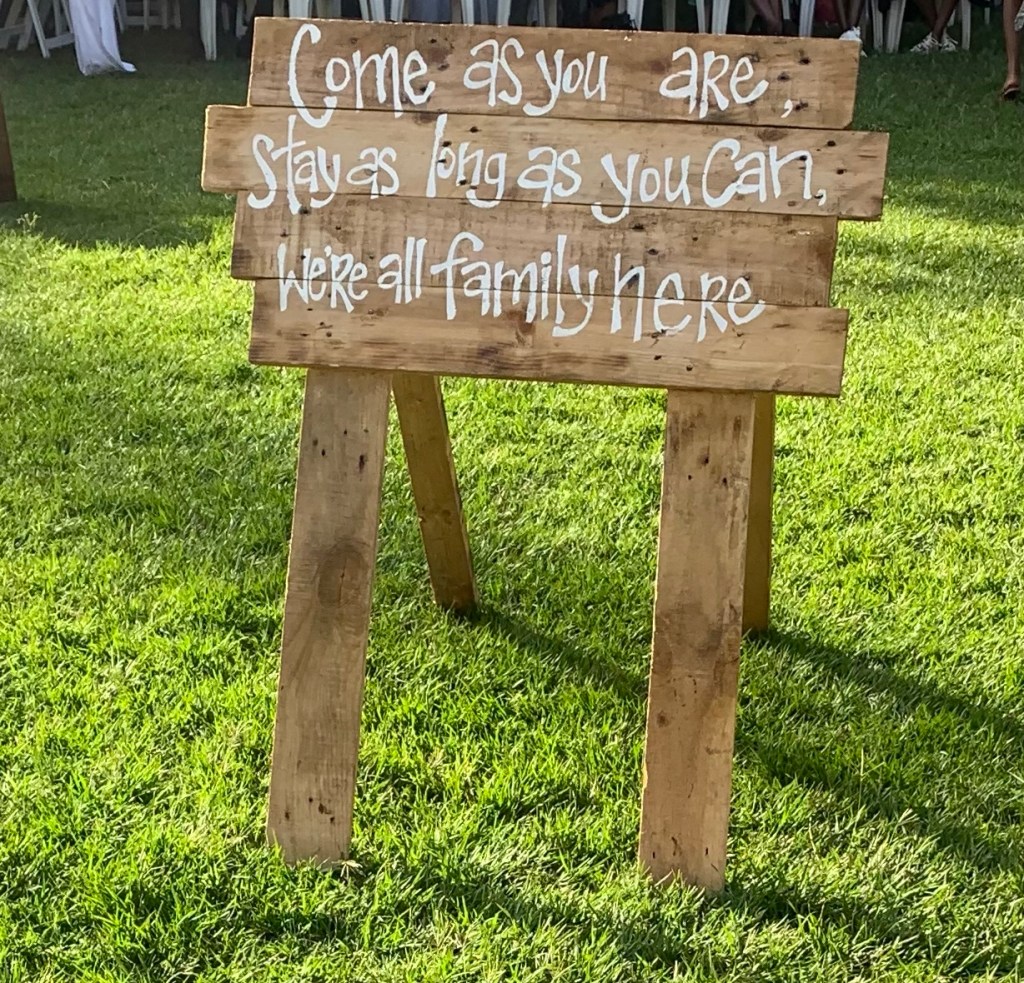 Come as you are,
Stay as long as you Can,
We're all family here